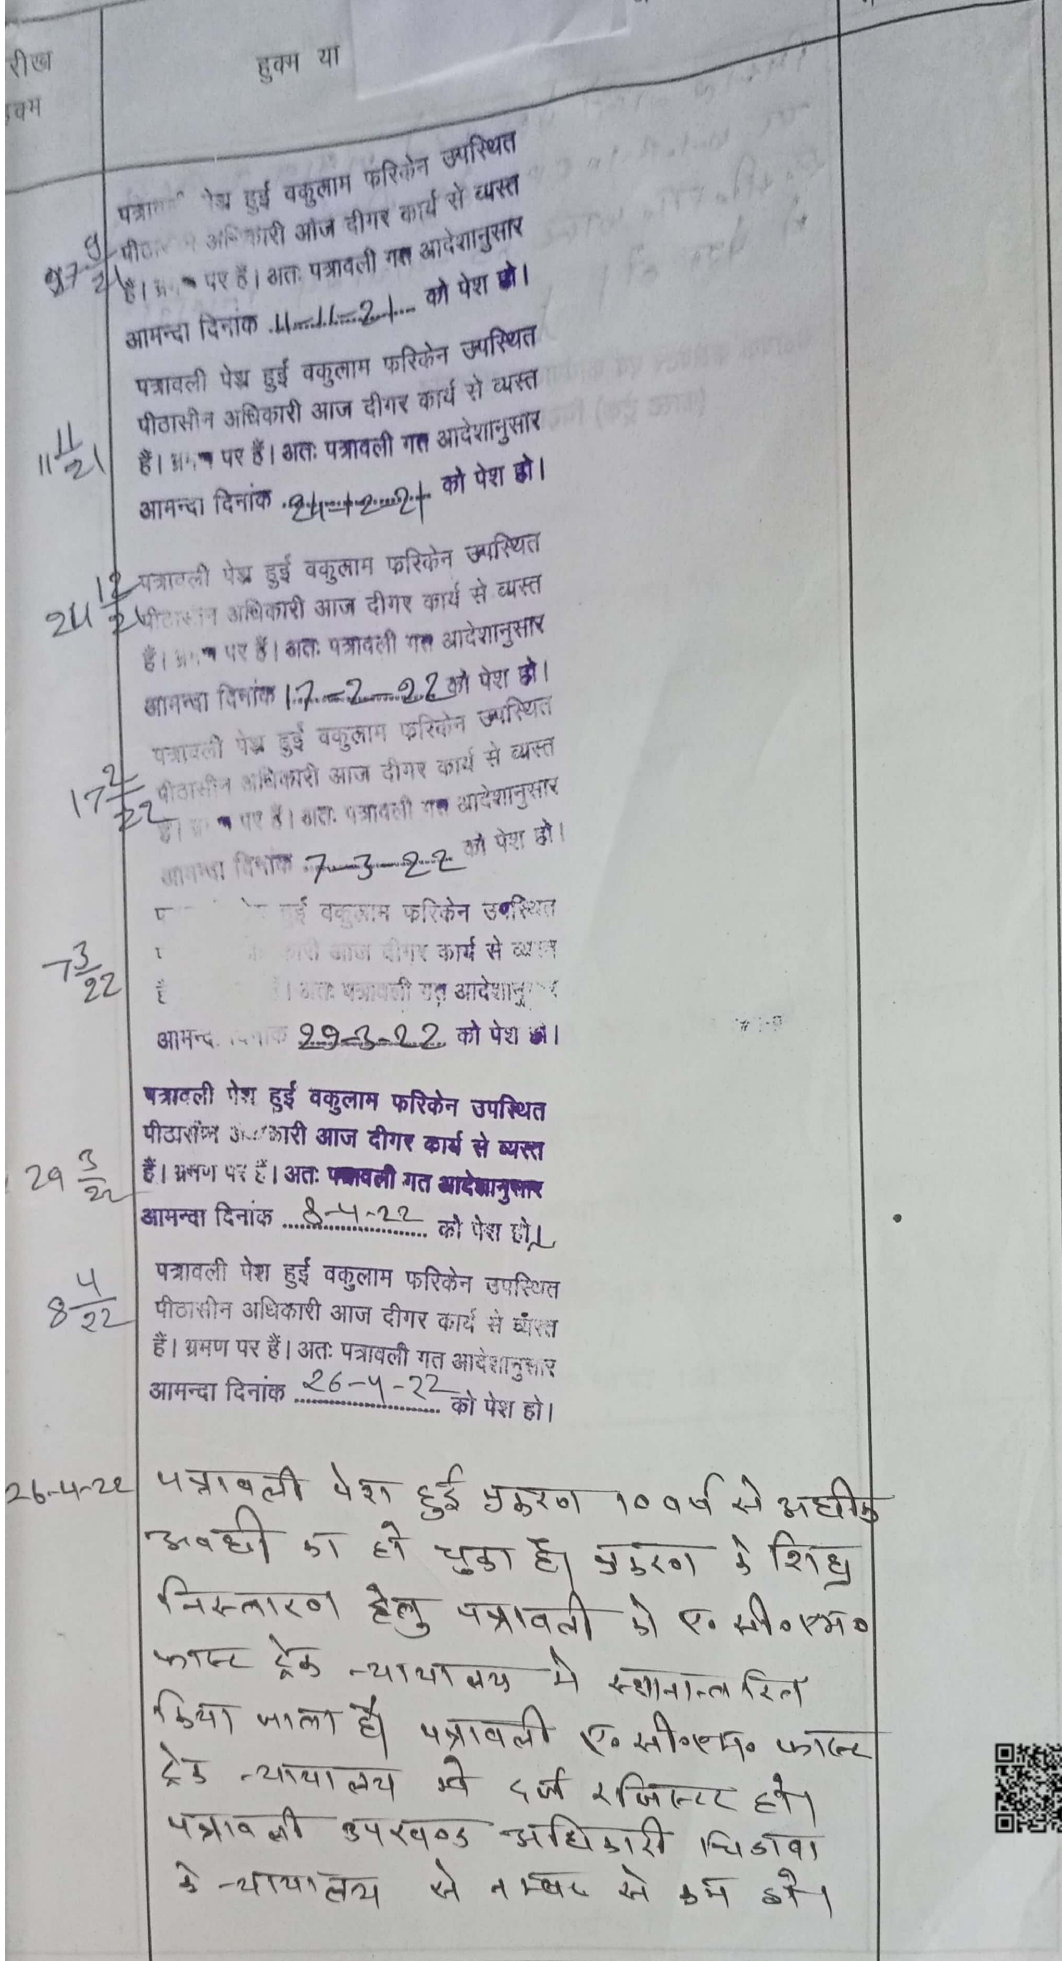 रीख
हुक्म या
क्म
पेश हुई वकुलाम फरिकेन उपस्थित
अधिकारी आज दीगर कार्य से व्यस्त
9
27
21
है। पर हैं। अतः पत्रावली गत आदेशानुसार
आमन्दा दिनांक 11-11-21 को पेश हो।
पत्रावली पेश हुई वकुलाम फरिकेन उपस्थित
पीठासीन अधिकारी आज दीगर कार्य से व्यस्त
11 11/21
हैं। पर हैं। अतः पत्रावली गत आदेशानुसार
आमन्दा दिनांक 24-12-21 को पेश हो।
24 12/21
पत्रावली पेश हुई वकुलाम फरिकेन उपस्थित
पीठासीन अधिकारी आज दीगर कार्य से व्यस्त
हैं। पर हैं। अतः पत्रावली गत आदेशानुसार
आमन्दा दिनांक 17-2-22 को पेश हो।
पत्रावली पेश हुई वकुलाम फरिकेन उपस्थित
17 2/22
पीठासीन अधिकारी आज दीगर कार्य से व्यस्त
हैं। पर हैं। अतः पत्रावली गत आदेशानुसार
आमन्दा दिनांक 7-3-22 को पेश हो।
हुई वकुलाम फरिकेन उपस्थित
7 3/22
आज दीगर कार्य से व्यस्त
अतः पत्रावली गत
29-3-22 को पेश हो।
पत्रावली पेश हुई वकुलाम फरिकेन उपस्थित
पीठासीन अधिकारी आज दीगर कार्य से व्यस्त
29 3/22
हैं। भ्रमण पर हैं। अतः पत्रावली गत आदेशानुसार
आमन्दा दिनांक 8-4-22 को पेश हो।
8 4/22
पत्रावली पेश हुई वकुलाम फरिकेन उपस्थित
पीठासीन अधिकारी आज दीगर कार्य से व्यस्त
हैं। भ्रमण पर हैं। अतः पत्रावली गत आदेशानुसार
आमन्दा दिनांक 26-4-22 को पेश हो।
26-4-22 पत्रावली पेश हुई प्रकरण 10 वर्ष से अधीक
अवधी का हो चुका है। प्रकरण के शिघ्र
निस्तारण हेतु पत्रावली को ए॰ सी॰ एम॰
फास्ट ट्रेक न्यायालय मे स्थानान्तरित
किया जाता है। पत्रावली ए॰ सी॰ एम॰ फास्ट
ट्रेक न्यायालय मे दर्ज रजिस्टर हो।
पत्रावली उपखण्ड अधिकारी चिडावा
के न्यायालय से नम्बर से कम हो।